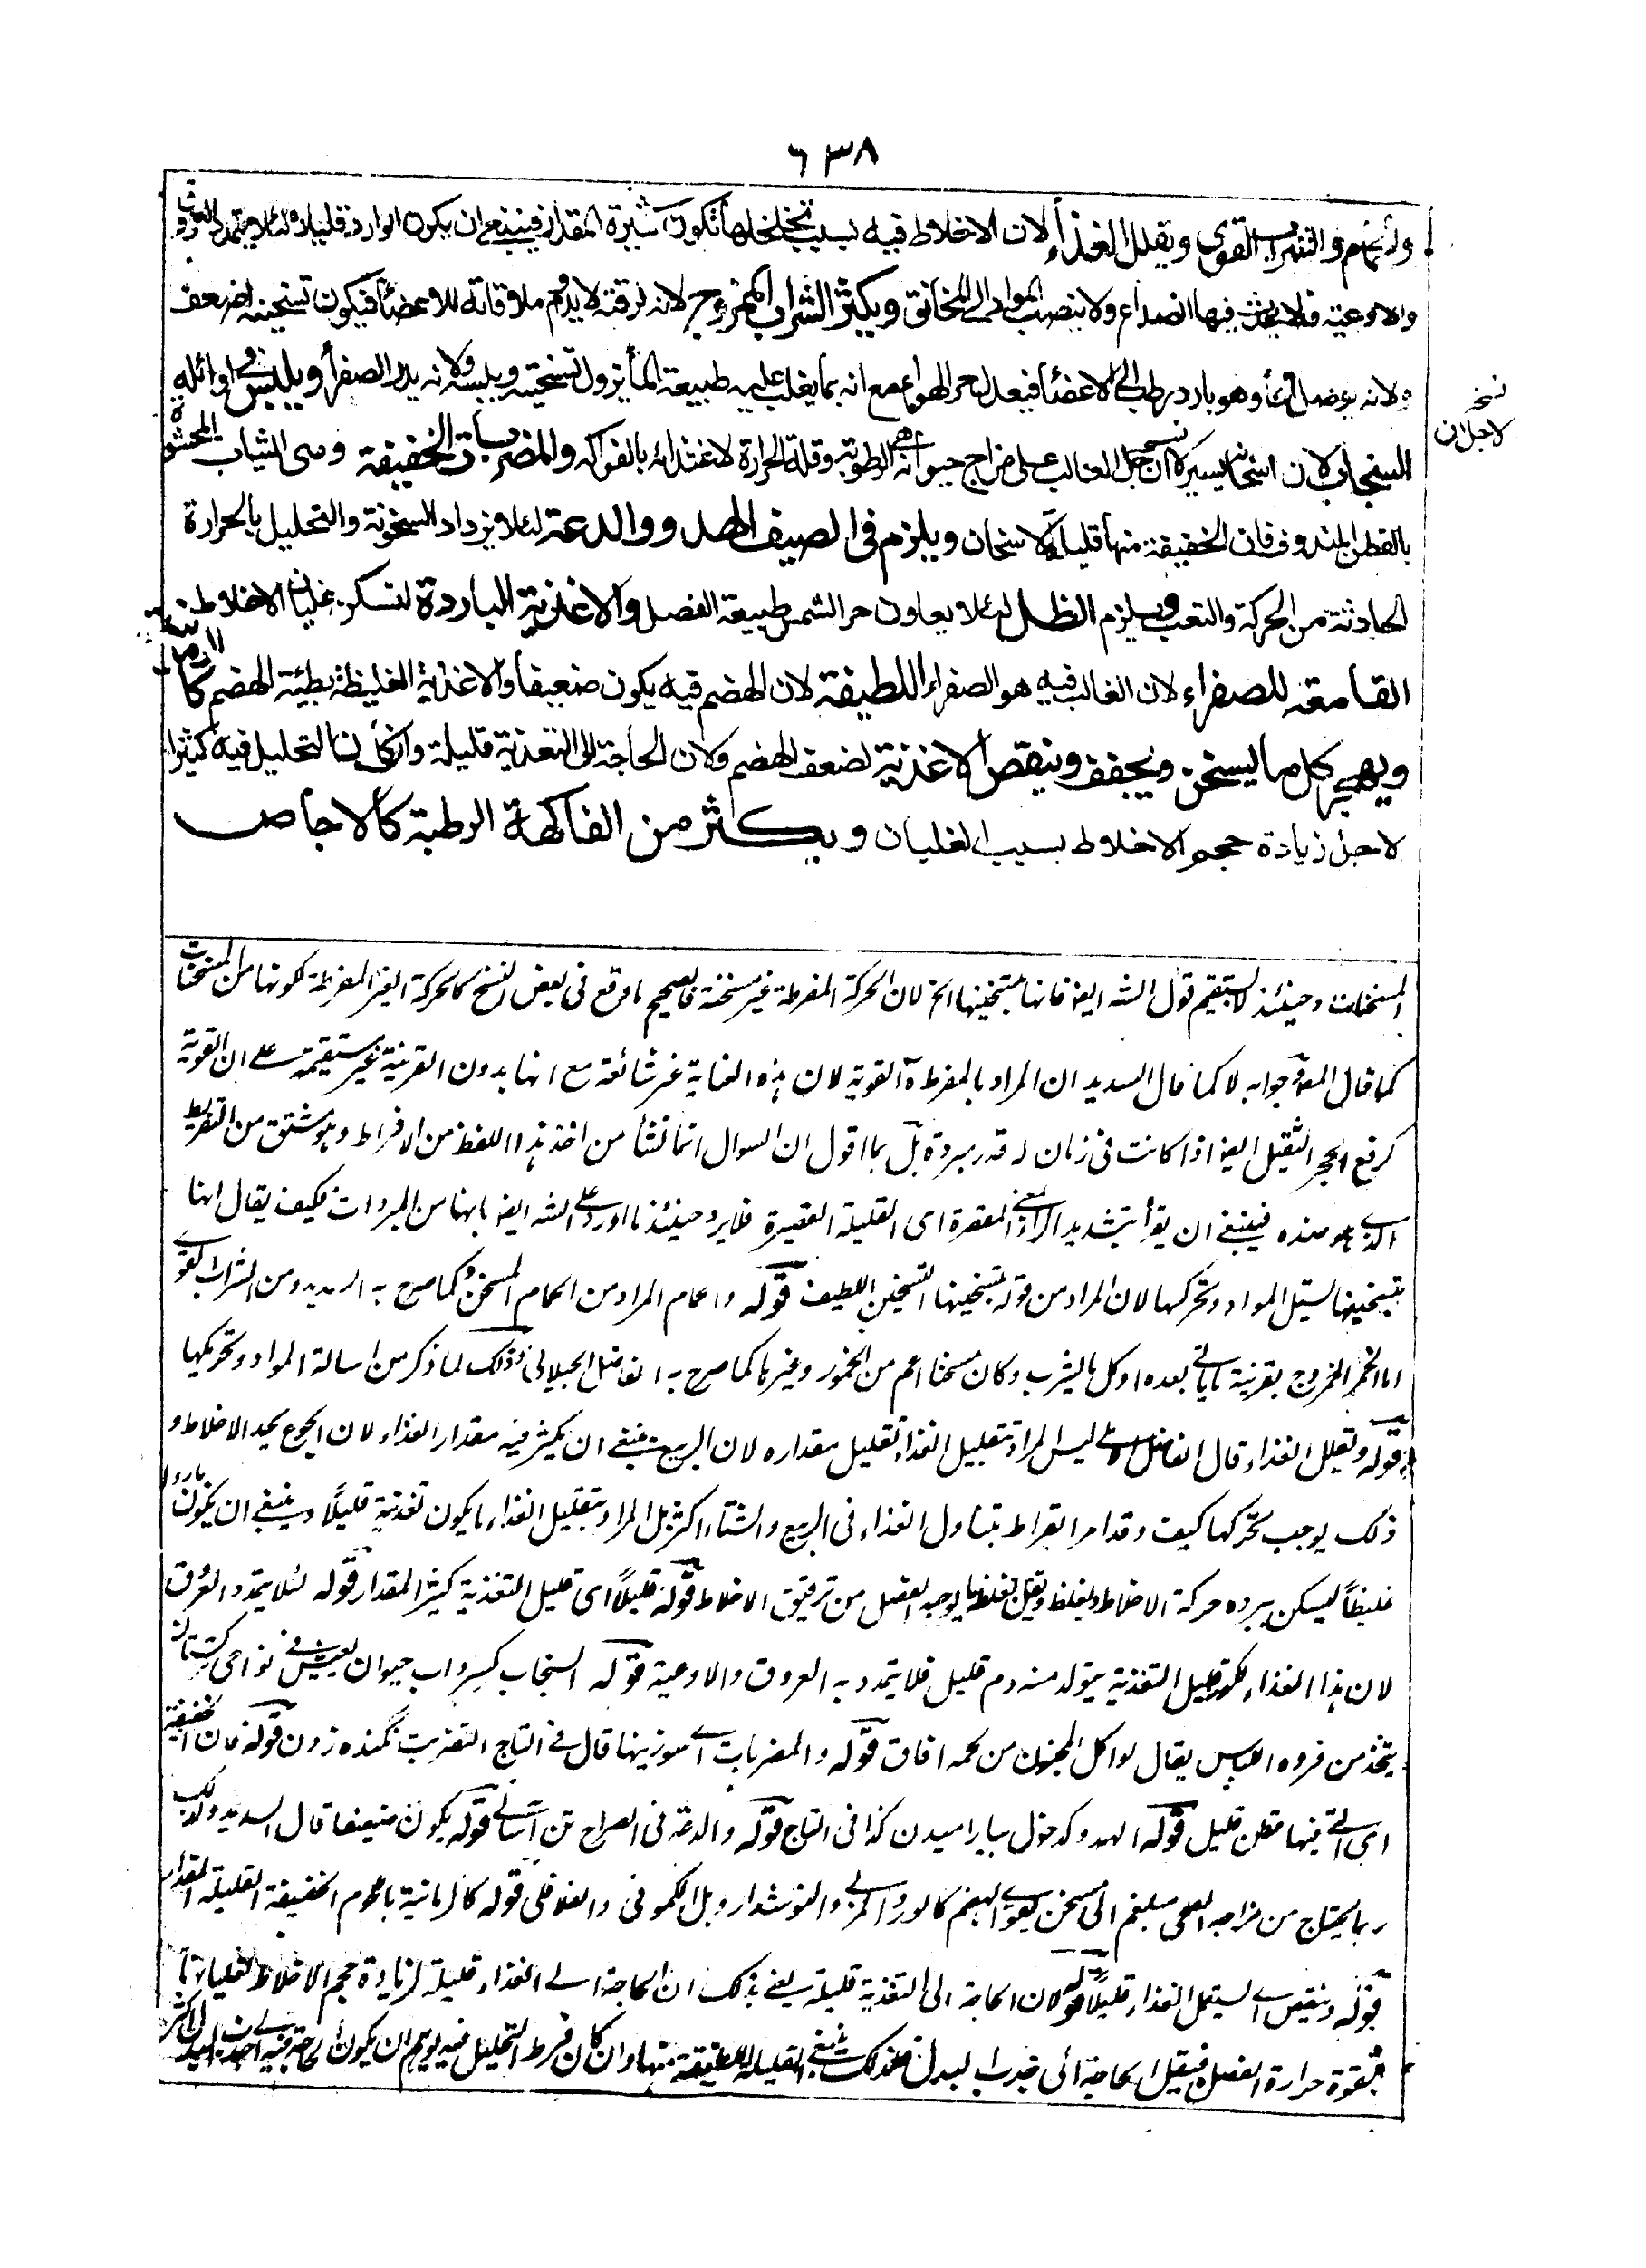 ٦٣٨
والحمام والشراب القوى ويقلل الغذاء لان الاخلاط فيه بسبب تخلخلها تكون كثيرة المقدار فينبغى ان يكون الوارد قليلا لئلا يتمدد العروق
والاوعية فلا يحدث فيها الصداع ولا ينصب المواد الى المخانق ويكثر الشراب الممزوج لانه لرقته لا يدوم ملاقاته للاعضاء فيكون تسخينه اضعف
ولانه يوصل الماء وهو بارد رطب الى الاعضاء فيعدل حر الهواء مع انه بما يغلب عليه طبيعة الماء يزول تسخينه ويبسه ولانه يدر الصفراء ويلبس فى اوائله
نسخه
لاجل ان
السنجاب لان اسخانه يسير لان الغالب على مزاج حيوانه هى الرطوبة وقلة الحرارة لاغتذائه بالفواكه والمضربات الخفيفة وهى الثياب المحشوة
بالقطن المندوف فان الخفيفة منها قليل الاسخان ويلزم فى الصيف الهدو والدعة لئلا يزداد السخونة والتحليل بالحرارة
الحادثة من الحركة والتعب ويلزم الظل لئلا يعاون حر الشمس طبيعة الفصل والاغذية الباردة لتسكن غليان الاخلاط
القامعة للصفراء لان الغالب فيه هو الصفراء اللطيفة لان الهضم فيه يكون ضعيفا والاغذية الغليظة بطيئة الهضم كالرمانية
ويهجر كل ما يسخن ويجفف وينقص الاغذية لضعف الهضم ولان الحاجة الى التغذية قليلة وان كان التحليل فيه كثيرا
لاجل زيادة حجم الاخلاط بسبب الغليان ويكثر من الفاكهة الرطبة كالاجاص
المسخنات وحينئذ لا يستقيم قول الشه ايضا فانها بتسخينها الخ لان الحركة المفرطة غير مسخنة فالصحيح ما وقع فى بعض النسخ كالحركة الغير المفرطة لكونها من المسخنات
كما قال المؤ جوابه لا كما قال السديد ان المراد بالمفرطة القوية لان هذه العناية غير شائعة مع انها بدون القرينة غير مستقيمة على ان القوية
كرفع الحجر الثقيل ايضا اذا كانت فى زمان له قدر مبردة بل بما اقول ان السوال انما نشأ من اخذ هذا اللفظ من الافراط وهو مشتق من التفريط
الذى هو ضده فينبغى ان يقرأ بتشديد الراء يعنى المقصرة اى القليلة القصيرة فلا يرد حينئذ ما اورد على الشه ايضا بانها من المبردات فكيف يقال انها
بتسخينها تسيل المواد وتحركها لان المراد من قوله بتسخينها التسخين اللطيف قوله والحمام المراد من الحمام المسخن كما صرح به السديد ومن الشراب القوى
اما الخمر الممزوج بقرينة ما ياتى بعده او كل ما يشرب وكان مسخنا اعم من الخمور وغيرها كما صرح به الفاضل الجيلانى وذلك لما ذكر من اسالة المواد وتحريكها
قوله ويقلل الغذاء قال الفاضل ليس المراد بتقليل الغذاء تقليل مقداره لان الربيع ينبغى ان يكثر فيه مقدار الغذاء لان الجوع يحد الاخلاط و
ذلك يوجب تحركها كيف وقد امر ابقراط بتناول الغذاء فى الربيع والشتاء اكثر بل المراد بتقليل الغذاء ما يكون تغذيته قليلا وينبغى ان يكون باردا
غليظا ليسكن ببرده حركة الاخلاط وبغلظه ما يوجبه الفصل من ترقيق الاخلاط قوله قليلا اى قليل التغذية كثير المقدار قوله لئلا يتمدد العروق
لان هذا الغذاء لكونه قليل التغذية يتولد منه دم قليل فلا يتمدد به العروق والاوعية قوله السنجاب كسرداب حيوان يعيش فى نواحى تركستان
يتخذ من فروه اللباس يقال لو اكل المجنون من لحمه افاق قوله والمضربات اى سوزنيها قال فى التاج التضريب نگنده زدن قوله فان الخفيفة
اى التى فيها قطن قليل قوله الهدو كدخول بيارامیدن كذا فى التاج قوله والدعة فى الصراح تن آسانى قوله يكون ضعيفا قال السديد ولذلك
ربما يحتاج من مزاجه بلغم الى مسخن يقوى الهضم كالورد المربى والنوشدارو بل الكمونى والفلافلى قوله كالرمانية باللحوم الخفيفة القليلة المقدار
قوله وينقص اى يستعمل الغذاء قليلا قوله ولان الحاجة الى التغذية قليلة يعنى بذلك ان الحاجة الى الغذاء قليلة لزيادة حجم الاخلاط لغليانها
بقوة حرارة الفصل فيقل الحاجة الى ايراد البدل فلذلك ينبغى القليلة اللطيفة منها وان كان فرط التحليل فيه يوهم ان يكون الحاجة فيه